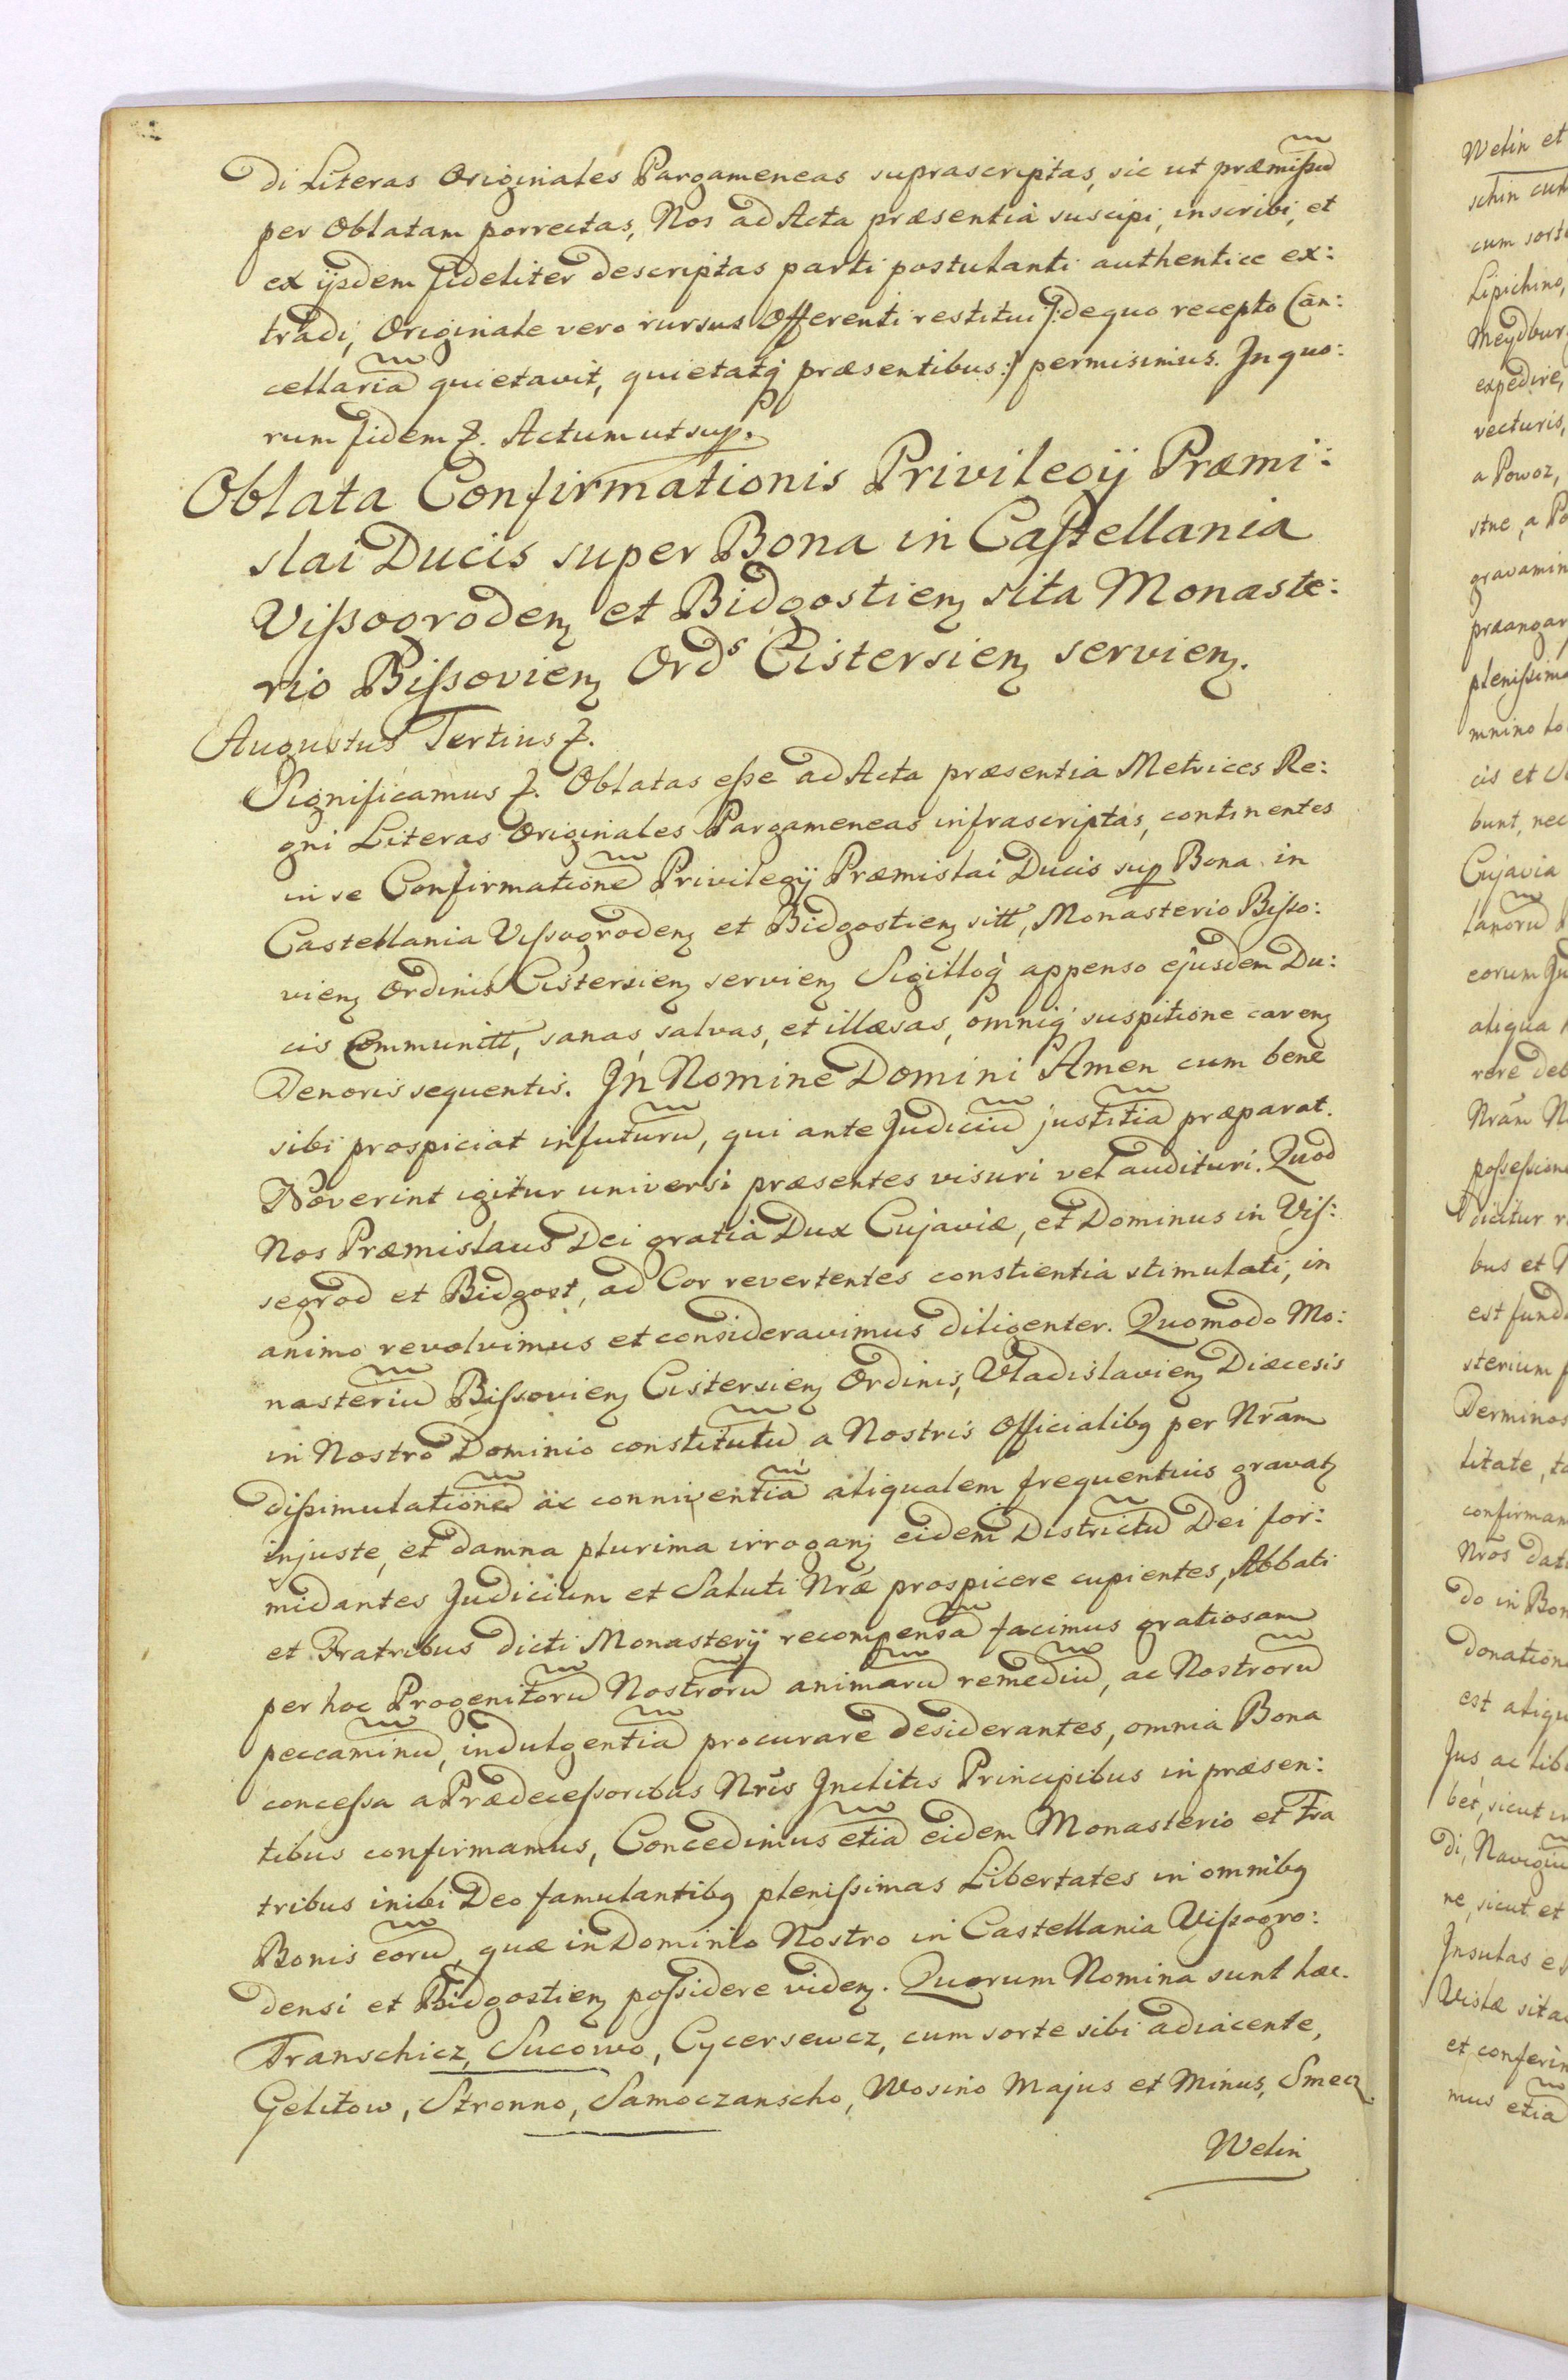 di Literas Originales Pargameneas suprascriptas, sic ut præmißũ
per Oblatam porrectas, Nos ad Acta præsentia suscipi, inscribi, et
ex ijsdem fideliter descriptas parti postulanti authentice ex:
tradi, Originale vero rursus Offerenti restitui /: de quo recepto Can:
cellariã quietavit, quietatq præsentibus :/ permisimus. In quo:
rum fidem &. Actum ut sup.
Oblata Confirmationis Privilegij Præmi:
slai Ducis super Bona in Castellania
Vißogroden et Bidgostien sita Monaste:
rio Bißovien Ords Cistersien servien.
Augustus Tertius &.
Significamus &. Oblatas eße ad Acta præsentia Metrices Re:
gni Literas Originales Pargameneas infrascriptas, continentes
in se Confirmationẽ Privilegij Præmislai Ducis sup Bona in
Castellania Vißogroden et Bidgostien sitt, Monasterio Bißo:
vien Ordinis Cistersien servien Sigilloq appenso ejusdem Du:
cis Communitt, sanas, salvas, et illæsas, omniq suspitione caren
Tenoris sequentis. In Nomine Domini Amen cum bene
sibi prospiciat in futurũ, qui ante Judiciũ justitiã præparat.
Noverint igitur universi præsentes visuri vel audituri. Quod
Nos Præmislaus Dei gratia Dux Cujaviæ, et Dominus in Viß:
segrod et Bidgost, ad Cor revertentes constientia stimulati, in
animo revolvimus et consideravimus diligenter. Quomodo Mo:
nasteriũ Bißovien Cistersien Ordinis, Vladislavien Diæcesis
in Nostro Dominio constitutũ a Nostris Officialibq per Nrãm
dißimulationẽ ac conniventiã aliqualem frequentius gravat
injuste, et damna plurima irrogan eidem Districtũ Dei for:
midantes Judicium et Saluti Nræ prospicere cupientes, Abbati
et Fratribus dicti Monasterij recompensã facimus gratiosam
per hoc Progenitorũ Nostrorũ animarũ remediũ, ac Nostrorũ
peccaminũ, indulgentiã procurare desiderantes, omnia Bona
conceßa a Prædeceßoribus Nrĩs Inclitis Principibus in præsen:
tibus confirmamus, Concedimus etiã eidem Monasterio et Fra
tribus inibi Deo famulantibq plenißimas Libertates in omnibq
Bonis eorũ, quæ in Dominio Nostro in Castellania Vißogro:
densi et Bidgostien poßidere viden. Quorum Nomina sunt hæc.
Transchicz, Sucowo, Cycersewcz, cum sorte sibi adiacente,
Gelitow, Stronno, Samoczanscho, Wosino Majus et Minus, Smecz
Welin